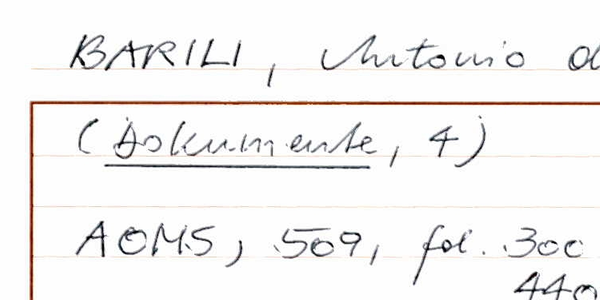 BARILI, Antonio d
(Dokumente, 4)
AOMS, 509, fol. 300
440